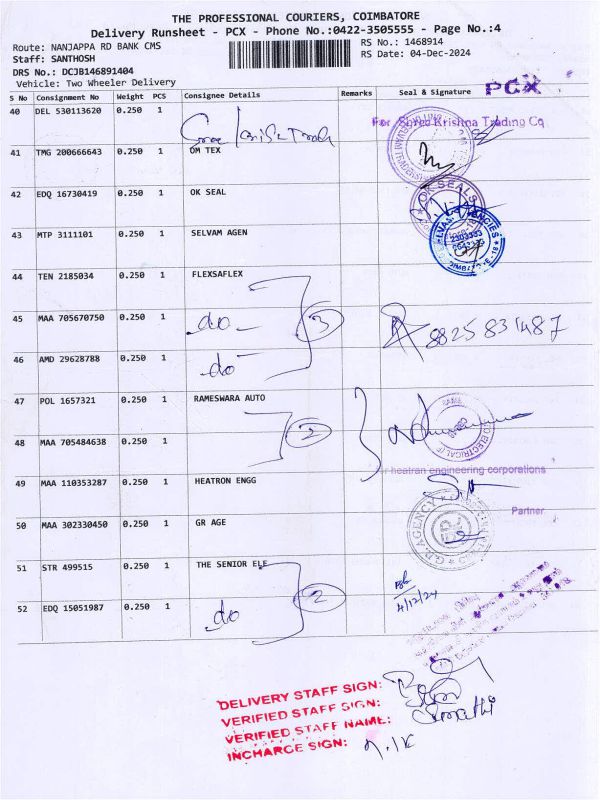 THE PROFESSIONAL COURIERS, COIMBATORE
Delivery Runsheet - PCX - Phone No.:0422-3505555 - Page No.:4
Route: NANJAPPA RD BANK CMS RS No.: 1468914
Staff: SANTHOSH RS Date: 04-Dec-2024
DRS No.: DCJB146891404
Vehicle: Two Wheeler Delivery
PCX
S No Consignment No Weight PCS Consignee Details Remarks Seal & Signature
40 DEL 530113620 0.250 1 For Shree Krishna Trading Co
41 TMG 200666643 0.250 1 OM TEX
42 EDQ 16730419 0.250 1 OK SEAL OK SEALS
43 MTP 3111101 0.250 1 SELVAM AGEN
44 TEN 2185034 1 0.250 FLEXSAFLEX
45 MAA 705670750 0.250 1 do 3 8825831487
46 AMD 29628788 0.250 1 do
47 POL 1657321 0.250 1 RAMESWARA AUTO
48 MAA 705484638 0.250 1 2
heatran engineering corporations
49 MAA 110353287 0.250 1 HEATRON ENGG
Partner
50 MAA 302330450 0.250 1 GR AGE
51 STR 499515 0.250 1 THE SENIOR ELE
4/12/24
52 EDQ 15051987 0.250 1 do 2
DELIVERY STAFF SIGN:
VERIFIED STAFF SIGN:
VERIFIED STAFF NAME: Sumathi
INCHARGE SIGN: